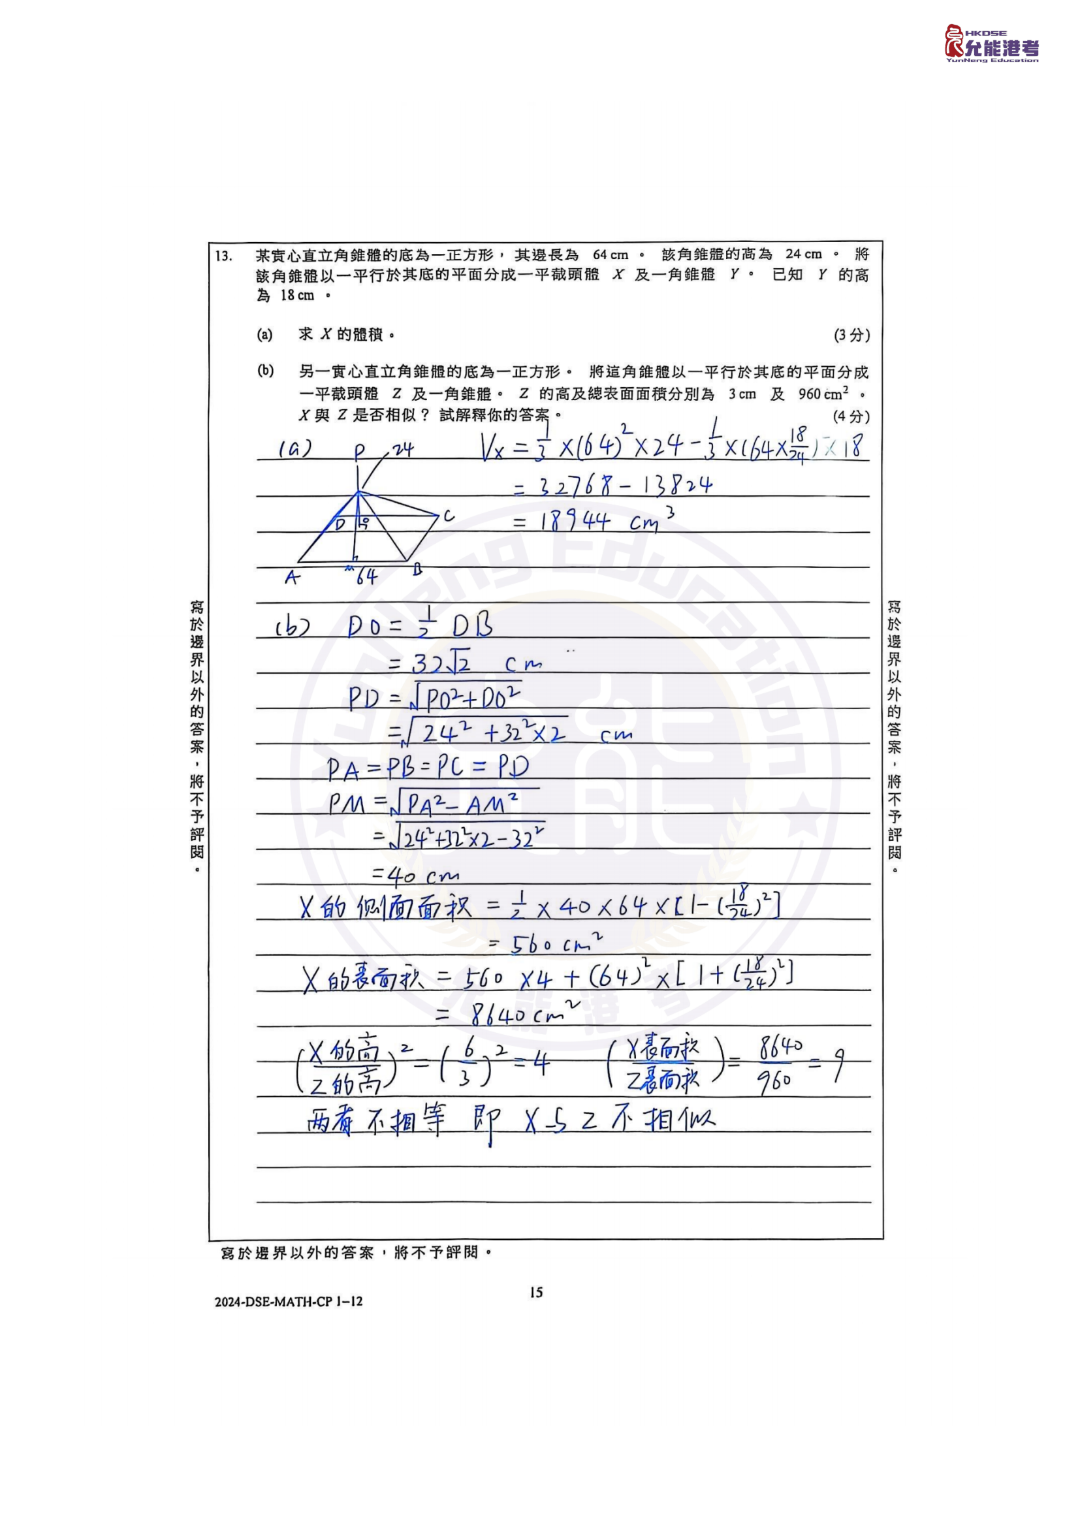 HKDSE
允能港考
YunNeng Education
13. 某實心直立角錐體的底為一正方形，其邊長為 64 cm。 該角錐體的高為 24 cm。 將
該角錐體以一平行於其底的平面分成一平截頭體 X 及一角錐體 Y。 已知 Y 的高
為 18 cm。
(a) 求 X 的體積。 (3 分)
(b) 另一實心直立角錐體的底為一正方形。 將這角錐體以一平行於其底的平面分成
一平截頭體 Z 及一角錐體。 Z 的高及總表面面積分別為 3 cm 及 960 cm²。
X 與 Z 是否相似？試解釋你的答案。 (4 分)
(a) P 24 Vx = 1/3 ×(64)² ×24 - 1/3 ×(64× 18/24)² ×18
= 32768 - 13824
D C
= 18944 cm³
A M 64 B
(b) DO = 1/2 DB
= 32√2 cm
PD = √PO²+DO²
= √24²+32²×2 cm
PA = PB = PC = PD
PM = √PA²-AM²
= √24²+32²×2-32²
= 40 cm
X的侧面面积 = 1/2 × 40 × 64 × [1-(18/24)²]
= 560 cm²
X的表面积 = 560 ×4 + (64)² ×[1+(18/24)²]
= 8640 cm²
(X的高/Z的高)² = (6/3)² = 4 (X表面积/Z表面积) = 8640/960 = 9
两者不相等 即 X与Z不相似
寫於邊界以外的答案，將不予評閱。
寫於邊界以外的答案，將不予評閱。
寫於邊界以外的答案，將不予評閱。
2024-DSE-MATH-CP 1–12
15
YunNeng Education
允能港考